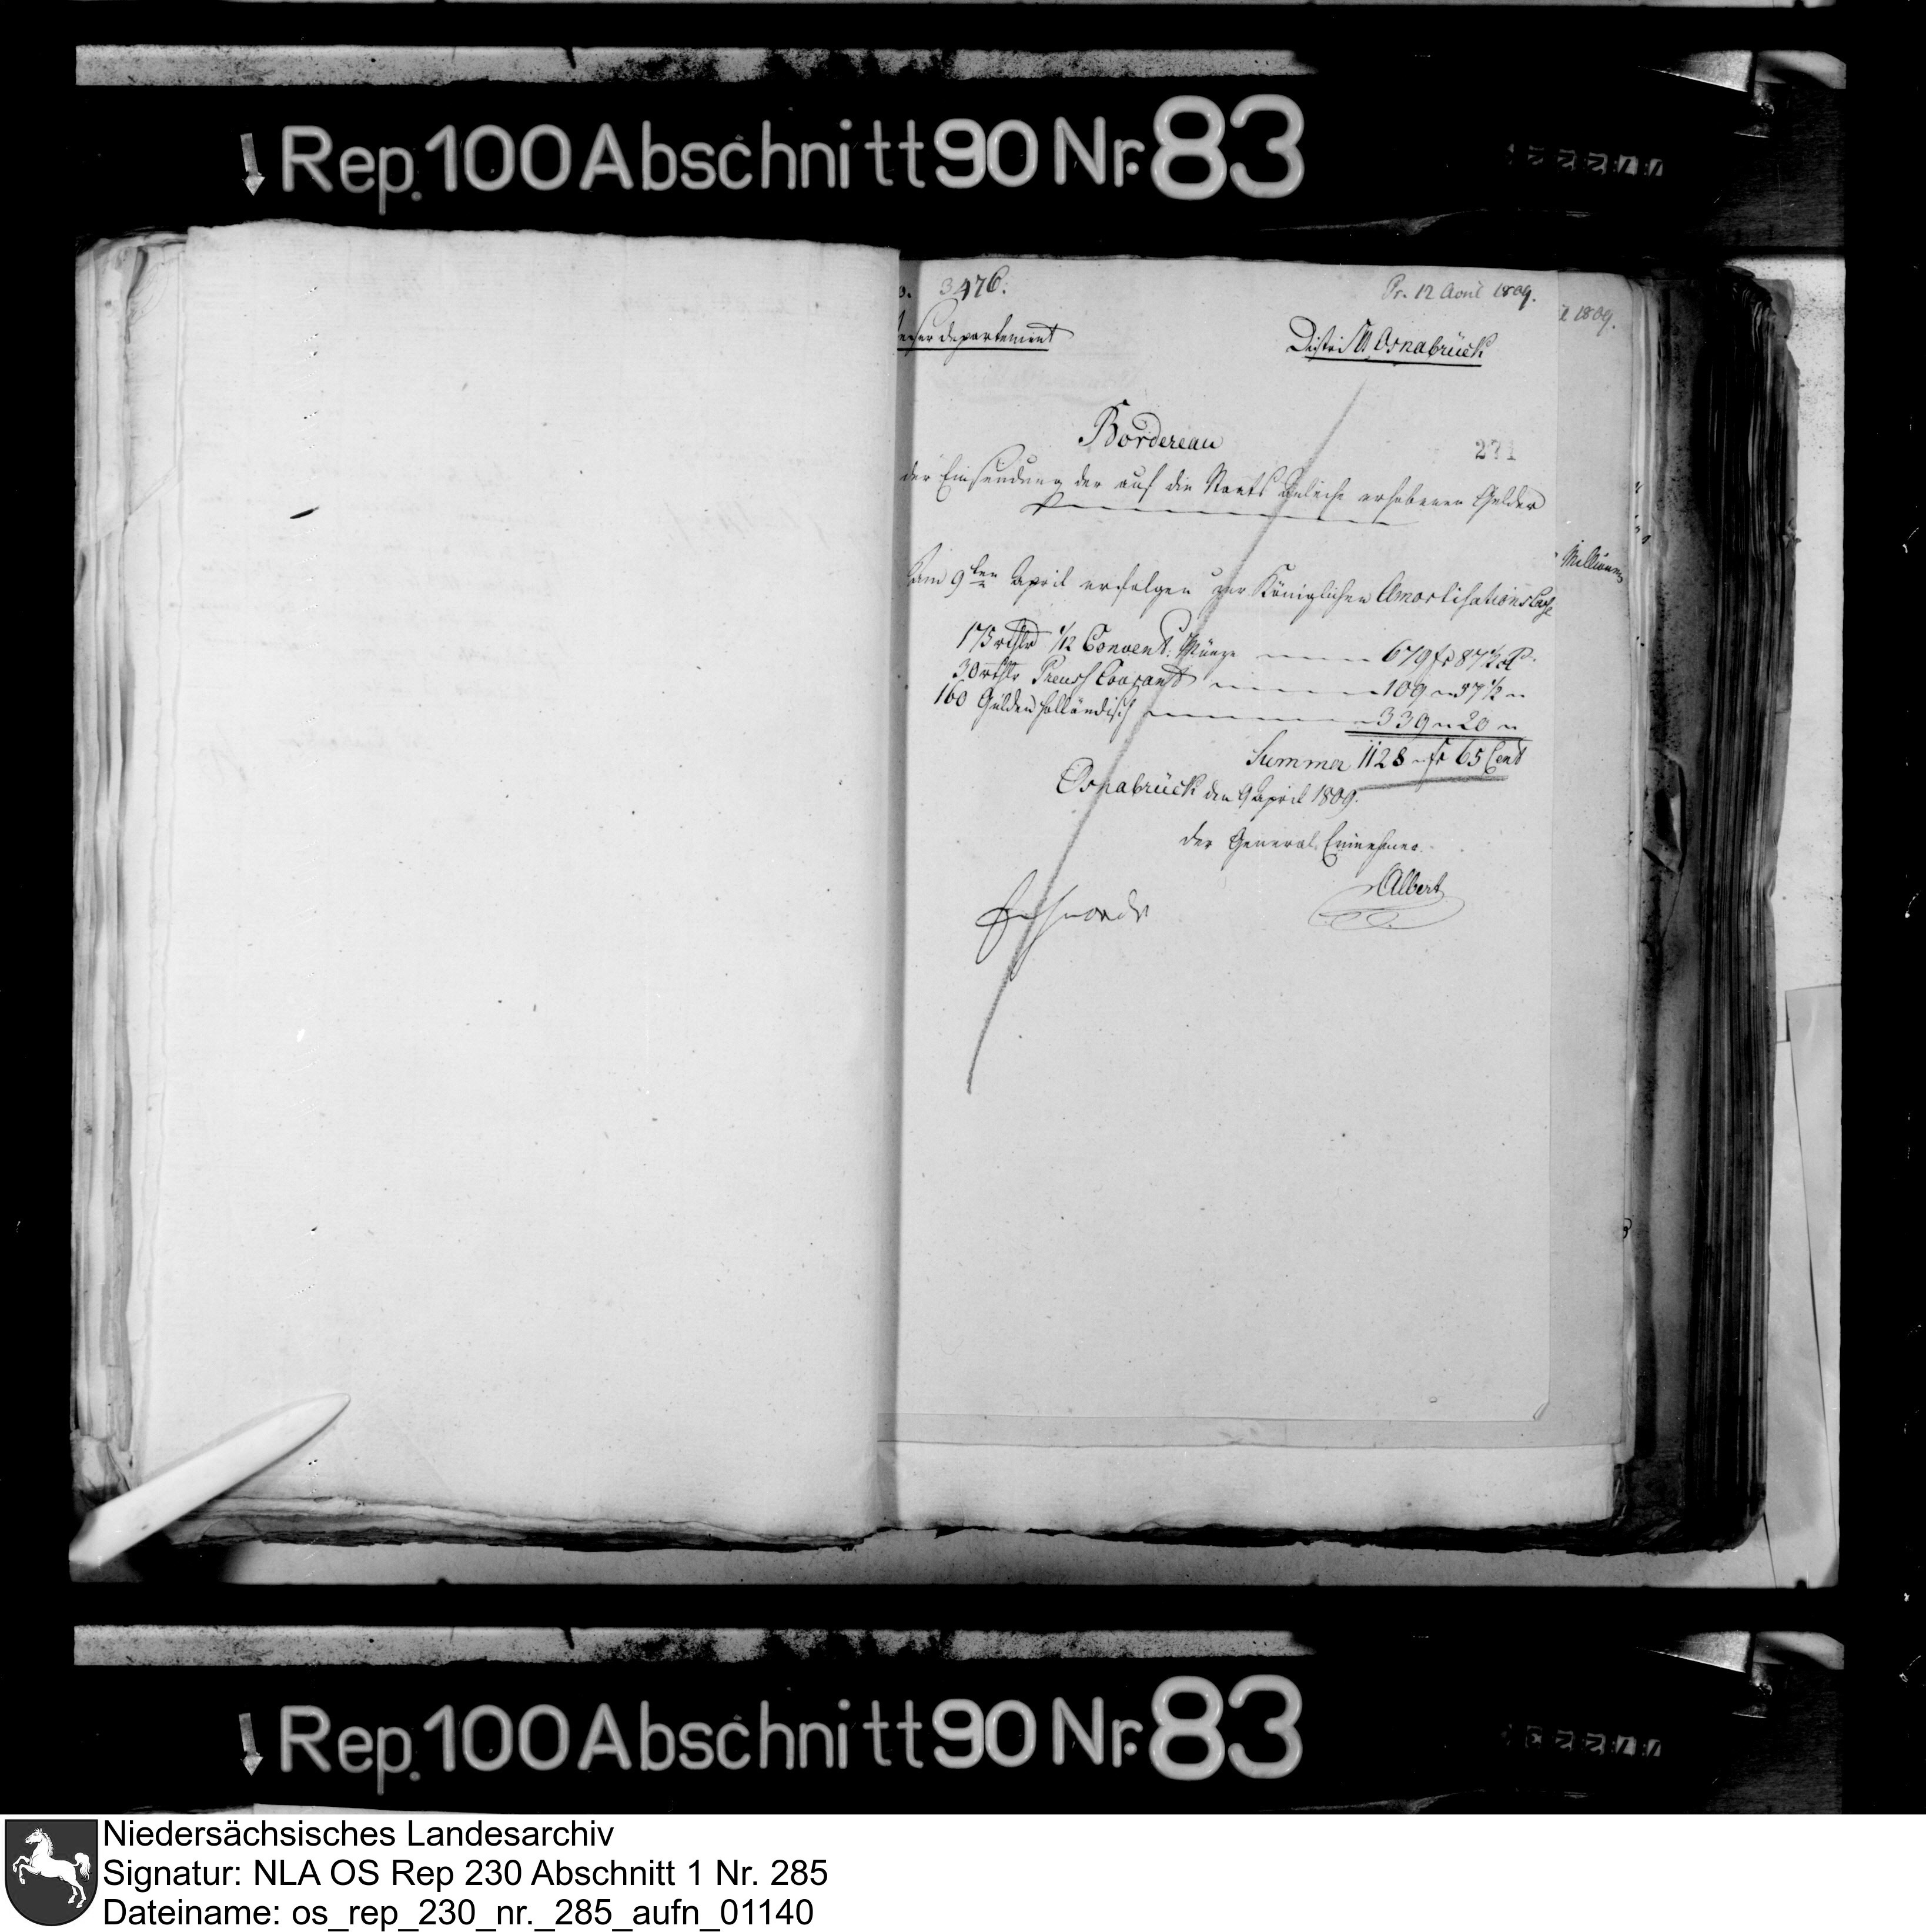 Rep. 100 Abschnitt 90 Nr. 83
3476.
Pr. 12 April 1809.
l 1809.
eser departement
District Osnabrück
Bordereau
271
der Einsendung der auf die Staats Anleihe erhobenen Gelder
Am 9ten April erfolgen zur Königlichen Amortisations Casse
175 rthlr 1/12 Convent. Münze 679 fr 87 1/2 C.
30 rthlr Preuss Courant 109 „ 57 1/2 „
160 Gulden holländisch 339 „ 20 „
Summa 1128 fr 65 Cent
Osnabrück den 9 April 1809.
der General Einnehmer
Albert
Rep. 100 Abschnitt 90 Nr. 83
Niedersächsisches Landesarchiv
Signatur: NLA OS Rep 230 Abschnitt 1 Nr. 285
Dateiname: os_rep_230_nr._285_aufn_01140